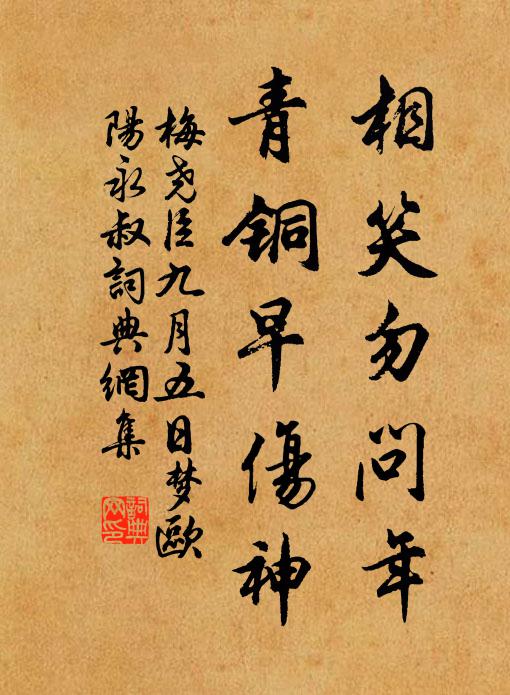 相笑勿问年
青铜早傷神
梅尧臣九月五日梦歐
陽永叔詞典網集
詞典
网印